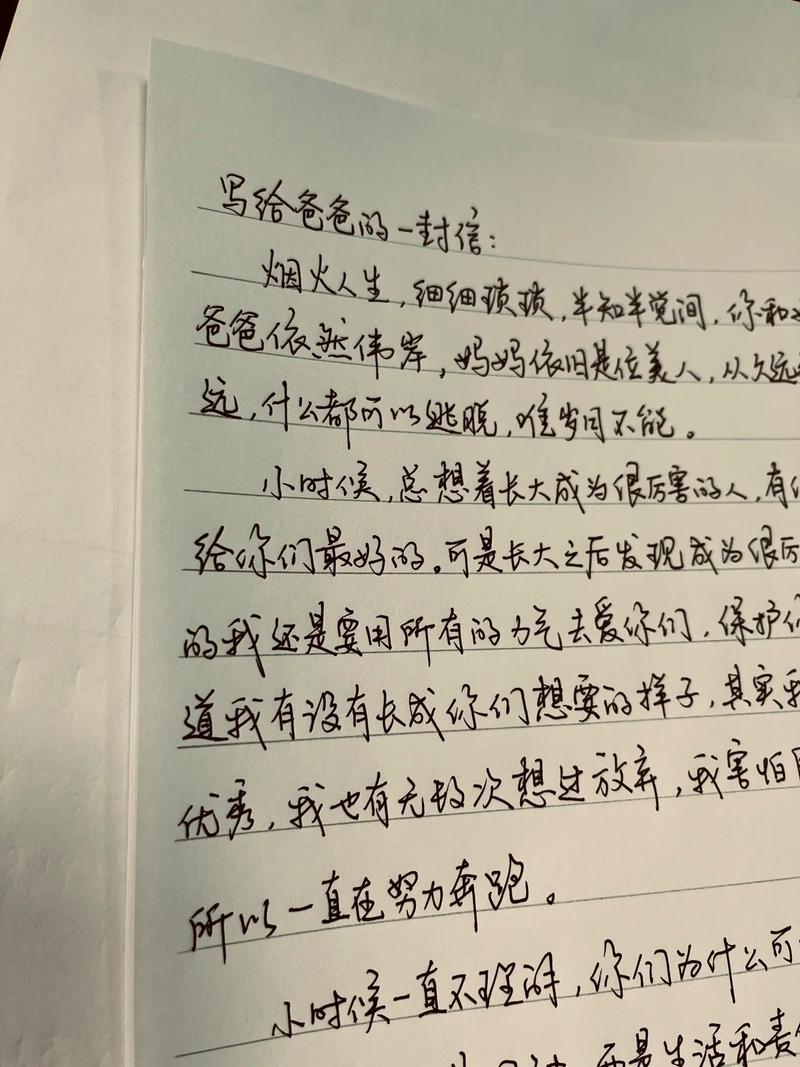 写给爸爸的一封信：
烟火人生，细细琐琐，半知半觉间，你和
爸爸依然伟岸，妈妈依旧是位美人，从久远
远，什么都可以逃脱，唯岁月不能。
小时候，总想着长大成为很厉害的人，有
给你们最好的。可是长大之后发现成为很厉
的我还是要用所有的力气去爱你们，保护
道我有没有长成你们想要的样子，其实我
优秀，我也有无数次想过放弃，我害怕
所以一直在努力奔跑。
小时候一直不理解，你们为什么可
而是生活和责